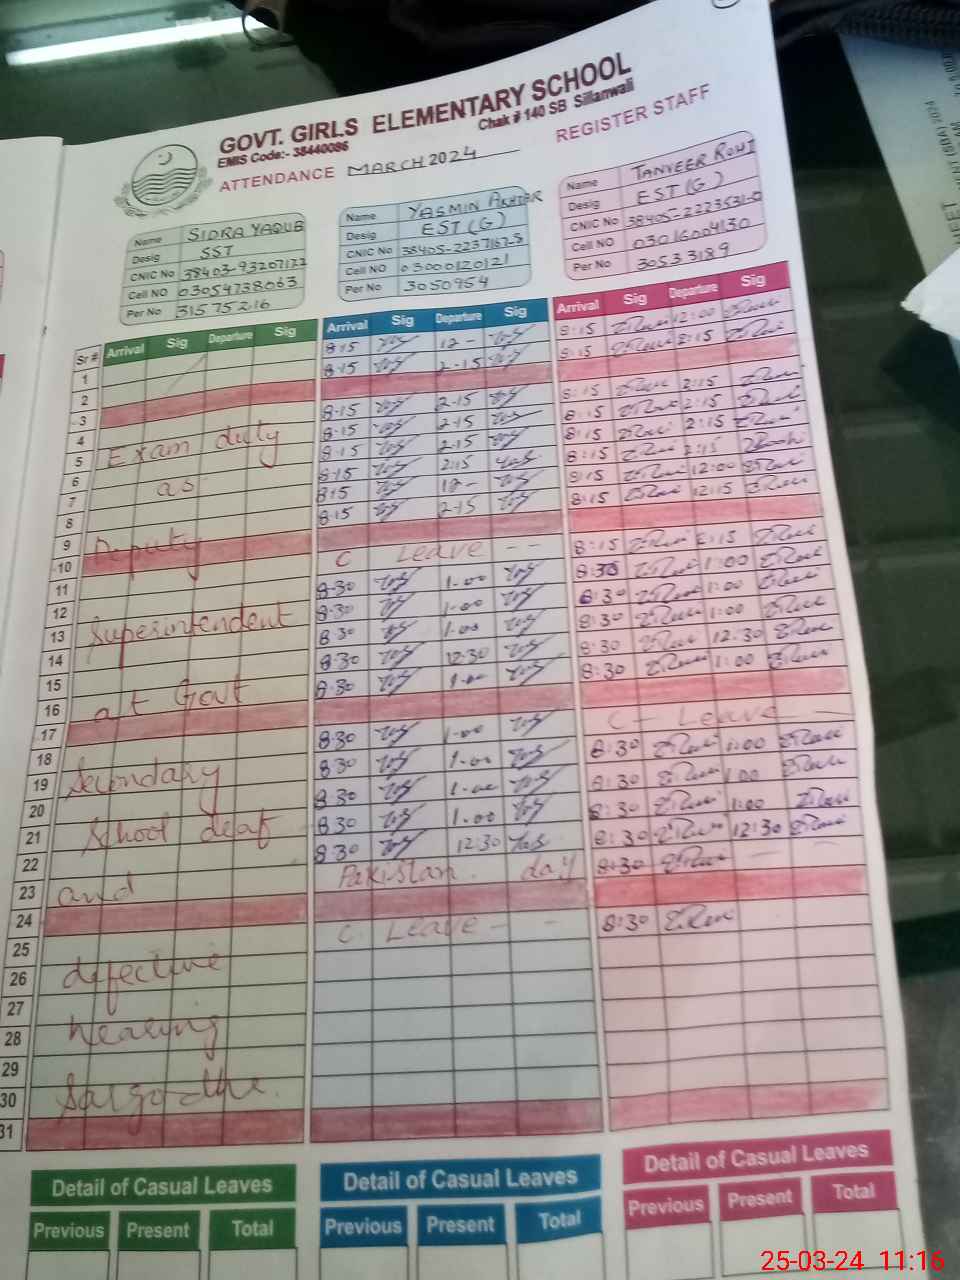 GOVT. GIRLS ELEMENTARY SCHOOL
EMIS Code:- 38440086
Chak # 140 SB Sillanwali
ATTENDANCE MARCH 2024 REGISTER STAFF
Name SIDRA YAQUB
Desig SST
CNIC No
Cell NO 03054738063
Per No 31575216
Name YASMIN AKHTAR
Desig EST (G)
CNIC No 38405-2237167-8
Cell NO 03000120121
Per No 3050954
Name TANVEER ROHI
Desig EST (G)
CNIC No 38405-2223531-0
Cell NO 03016004130
Per No 30533189
Sr # Arrival Sig Departure Sig Arrival Sig Departure Sig Arrival Sig Departure Sig
1 8:15 12- 8:15 12:00
2 8:15 2-15 8:15 2:15
3
4 Exam duty 8-15 2-15 8:15 2:15
5 8-15 2-15 8:15 2:15
6 as 8-15 2-15 8:15 2:15
7 8:15 2:15 8:15 2:15
8 8:15 12- 8:15 12:00
9 8:15 2-15 8:15 12:15
10 Deputy
11 C Leave -- 8:15 2:15
12 8-30 1-00 8:30 1:00
13 Superintendent 8:30 1-00 8:30 1:00
14 8:30 1-00 8:30 1:00
15 8:30 12:30 8:30 12:30
16 at Govt 8:30 1-00 8:30 1:00
17
18 Secondary 8:30 1-00 C- Leave —
19 8:30 1-00 8:30 1:00
20 School deaf 8:30 1-00 8:30 1:00
21 8:30 1.00 8:30 1:00
22 8:30 12:30 8:30 12:30
23 and Pakistan day 8:30
24
25 C Leave - - 8:30
26 defective
27
28 hearing
29
30 Sargodha.
31
Detail of Casual Leaves
Previous Present Total
Detail of Casual Leaves
Previous Present Total
Detail of Casual Leaves
Previous Present Total
25-03-24 11:16